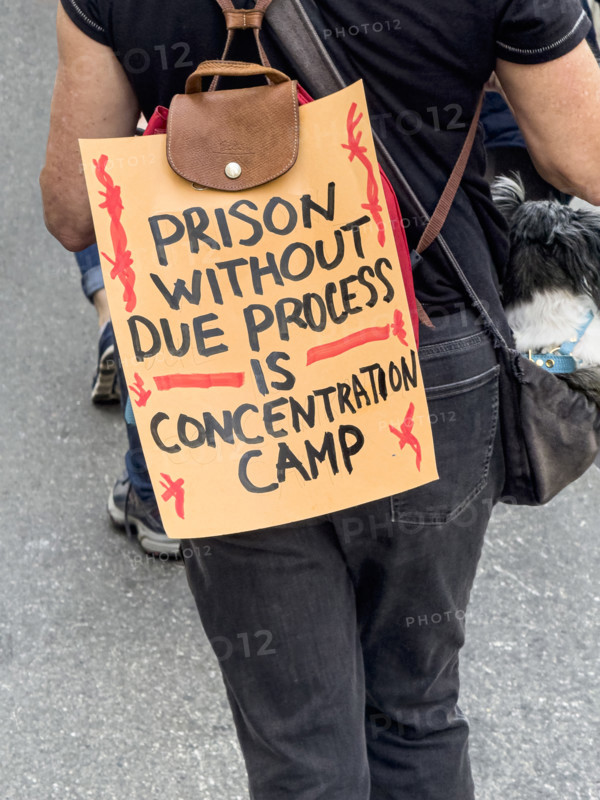 PRISON
WITHOUT
DUE PROCESS
IS
CONCENTRATION
CAMP
PHOTO12